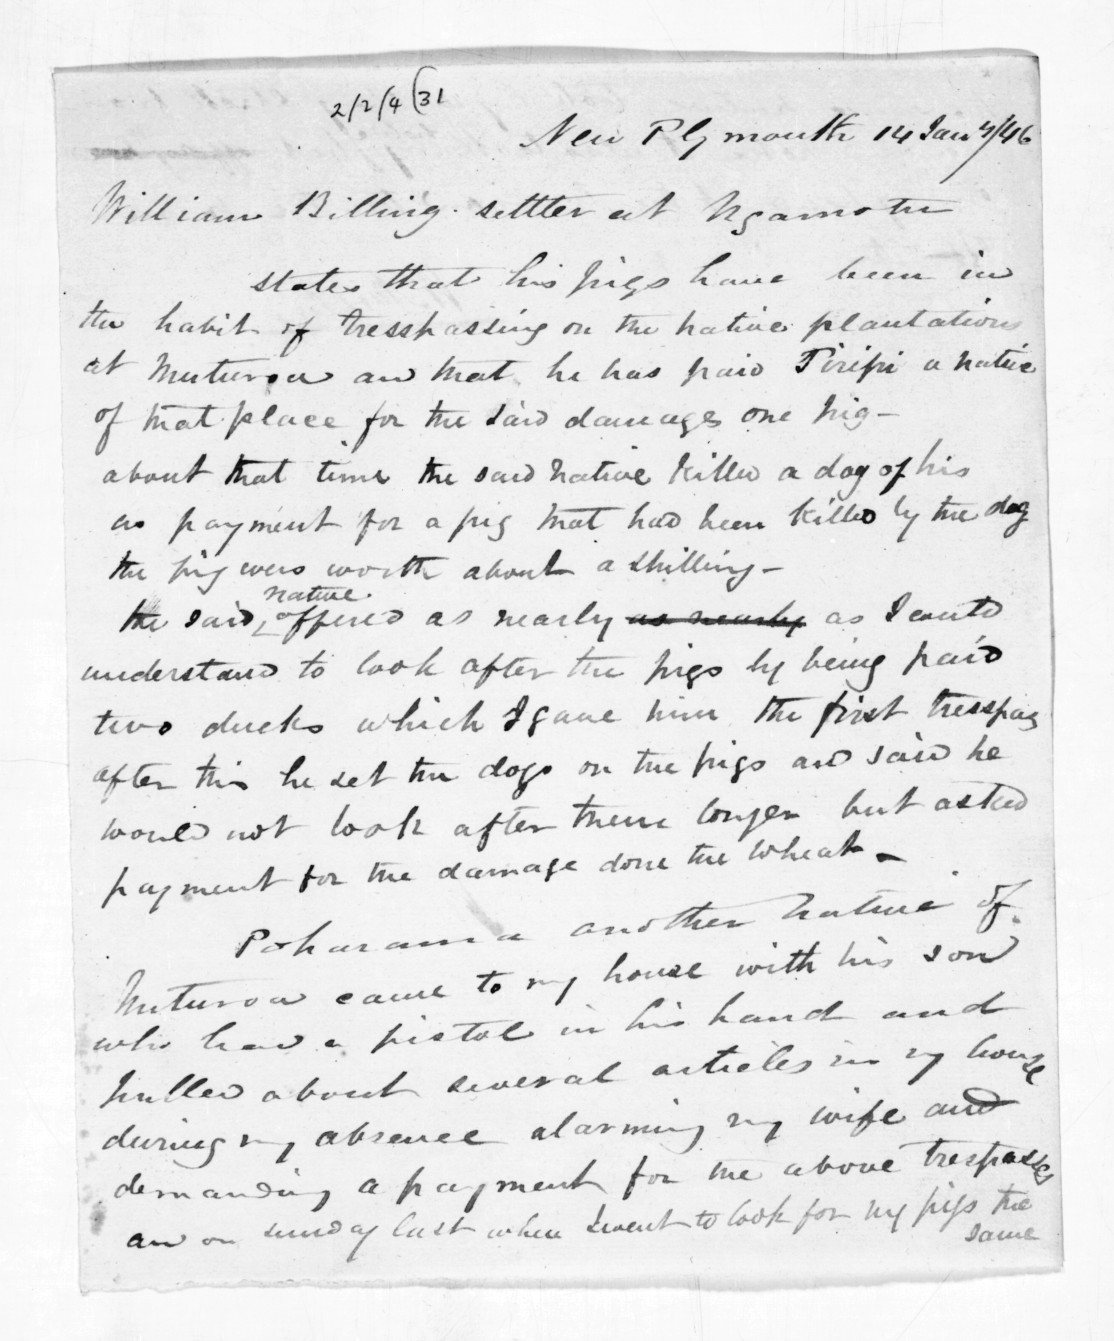 2/2/4 (31
New Plymouth 14 Jany/46
William Billing settler at Ngamotu
states that his pigs have been in
the habit of tresspassing on the native plantations
at Muturoa and that he has paid Tiripi a native
of that place for the said damages one pig -
about that time the said native killed a dog of his
as payment for a pig that had been killed by the dog
the pig was worth about a shilling -
native
the said offered as nearly as nearly as I could
understand to look after the pigs by being paid
two ducks which I gave him the first tresspass
after this he set the dogs on the pigs and said he
would not look after them longer but asked
payment for the damage done the wheat -
Poharama another native of
Muturoa came to my house with his son
who had a pistol in his hand and
pulled about several articles in my house
during my absence alarming my wife and
demanding a payment for the above trespasses
and on sunday last when I went to look for my pigs the
same